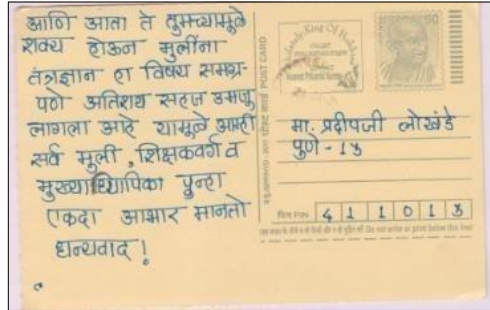 आणि आता ते तुमच्यामुळे
शक्य होऊन मुलींना
तंत्रज्ञान हा विषय समग्र-
पणे अतिशय सहज उमजू
लागला आहे यामुळे आम्ही
सर्व मुली, शिक्षकवर्ग व
मुख्याध्यापिका पुन्हा
एकदा आभार मानतो
धन्यवाद !
POST CARD
50
मा. प्रदीपजी लोखंडे
पुणे - १३
पिन PIN 4 1 1 0 1 3